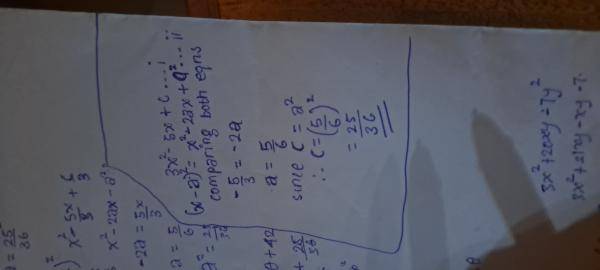 a = 25/36
x² - 5x/3 + c/3
x² - 2ax - a²
-2a = 5x/3
a = 5/6
3x² - 5x + c ... i
(x - a)² = x² - 2ax + a² ... ii
comparing both eqns
- 5/3 = -2a
a = 5/6
since c = a²
∴ c = (5/6)²
= 25/36
3x² + 20xy - 7y²
3x² + 21xy - xy - 7